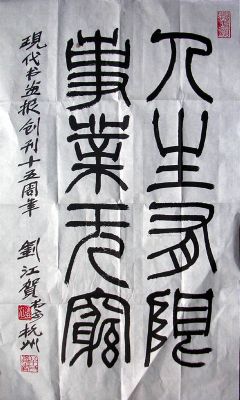 人生有限
事業无窮
現代书画报创刊十五周年
劉江賀於杭州